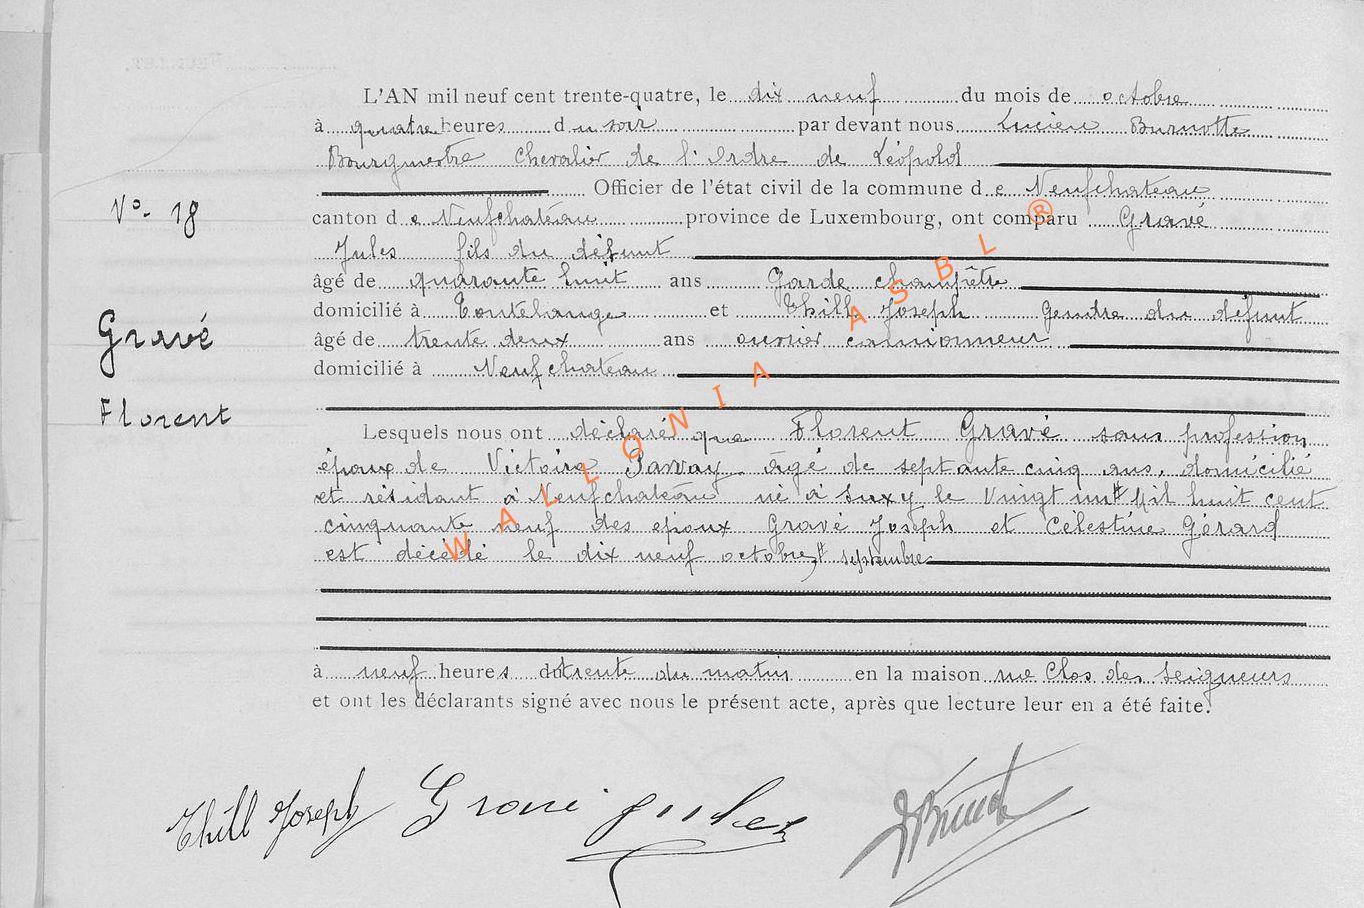 L'AN mil neuf cent trente-quatre, le dix neuf du mois de octobre
à quatre heures du soir par devant nous Lucien Burnotte
Bourgmestre Chevalier de l'Ordre de Léopold
Officier de l'état civil de la commune de Neufchateau
N° 18
canton de Neufchateau province de Luxembourg, ont comparu Gravé
Jules fils du défunt
âgé de quarante huit ans Garde champêtre
domicilié à Tontelange et Thill Joseph Gendre du défunt
Gravé
âgé de trente deux ans ouvrier camionneur
domicilié à Neufchateau
Florent
Lesquels nous ont déclaré que Florent Gravé sans profession
époux de Victoire âgé de septante cinq ans, domicilié
et résidant à Neufchateau né à Suxy le Vingt mil huit cent
cinquante neuf des époux Gravé Joseph et Célestine Gérard
est décédé le dix neuf octobre, septembre
à neuf heures trente du matin en la maison rue Clos des Seigneurs
et ont les déclarants signé avec nous le présent acte, après que lecture leur en a été faite.
Thill Joseph Gravé Jules
WALLONIA ASBL ®